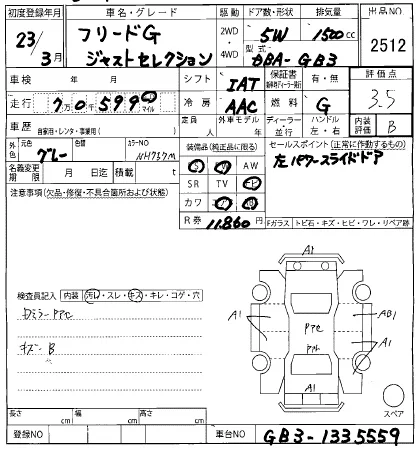 初度登録年月 車名・グレード 駆動 ドア数・形状 排気量 出品NO
23/3月 フリードG ジャストセレクション 2WD・4WD 5W 1500cc 2512
型式 DBA-GB3
車検 年 月 シフト IAT 保証書 有・無 評価点 3.5
走行 7万0千599 マイル 冷房 AAC 燃料 G
車歴 自家用・レンタ・事業用( ) 定員 人 外車モデル 年 ディーラー・並行 ハンドル 左・右 内装評価 B
外色 元色 グレー 色替 カラーNO NH737M 装備品(純正品に限る) セールスポイント(正常に作動するもの)
左パワースライドドア
名義変更期限 月 日迄 積載 t SR TV
注意事項(欠品・修復・不具合箇所および状態) カワ
R券 11,860円 Fガラス トビ石・キズ・ヒビ・ワレ・リペア跡
A1
検査員記入 内装 汚れ・スレ・キズ・キレ・コゲ・穴
A1 AB1
A1
A1
キズ B
長さ cm 幅 cm 高さ cm スペア
登録NO 車台NO GB3-1335559